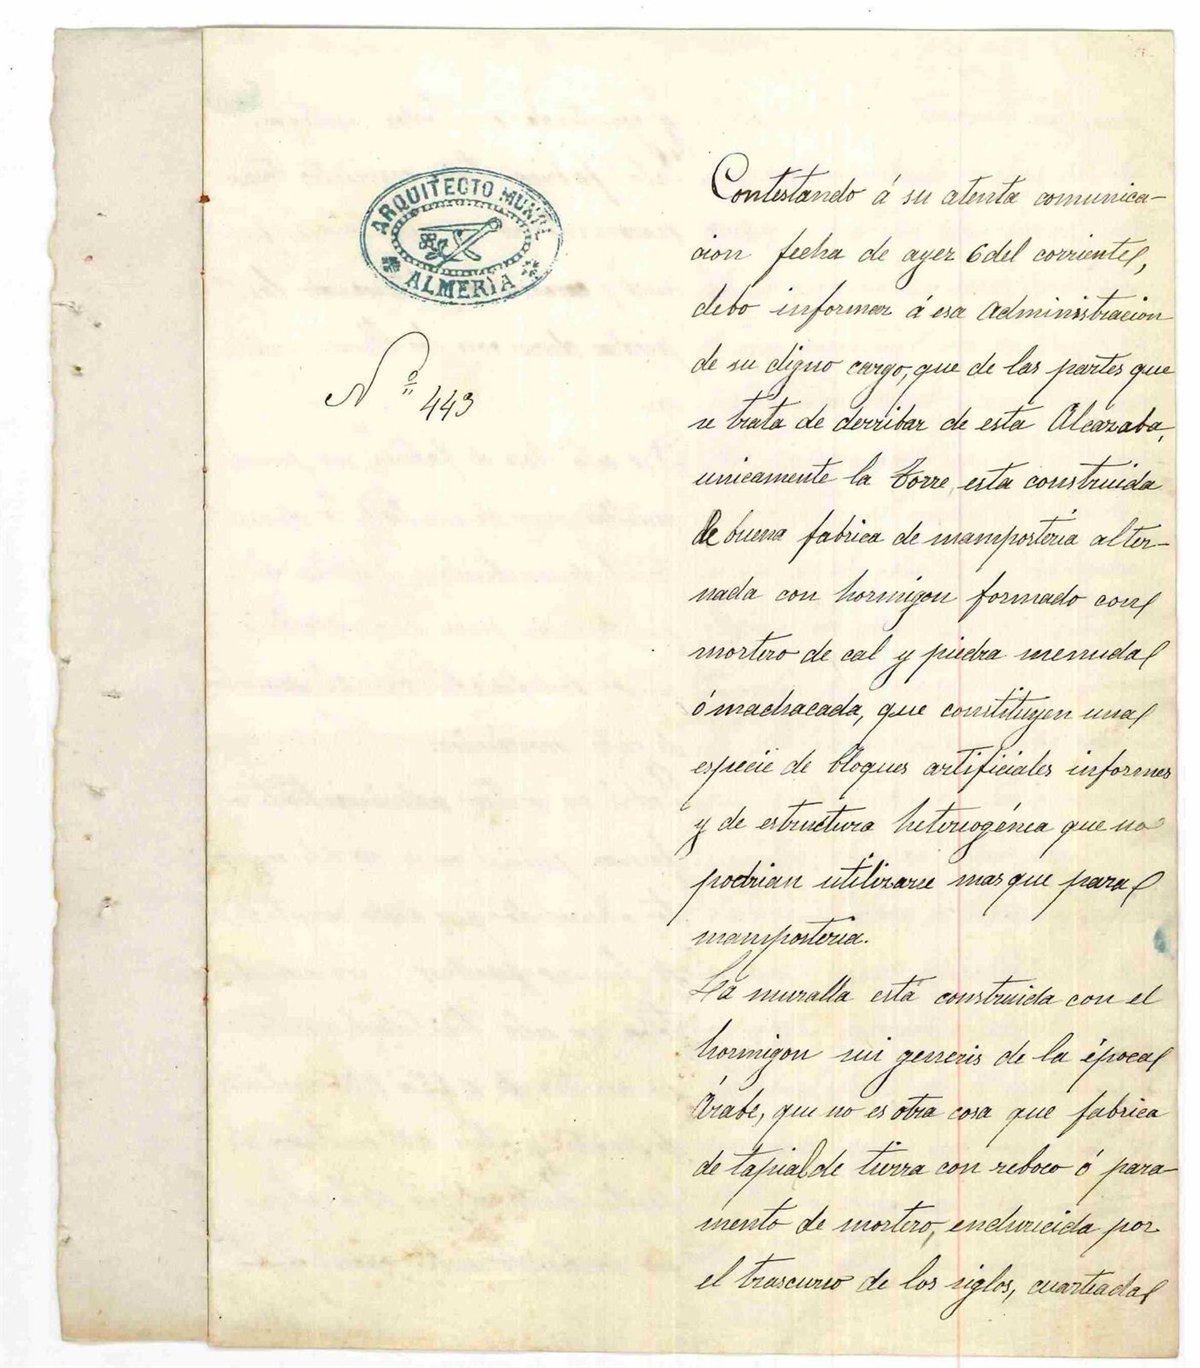 ARQUITECTO MUNPL
ALMERIA
Nº 443
Contestando á su atenta comunica-
cion fecha de ayer 6 del corriente,
debo informar á esa Administracion
de su digno cargo, que de las partes que
se trata de derribar de esta Alcazaba,
unicamente la Torre esta construida
de buena fabrica de mamposteria alter-
nada con hormigon formado con
mortero de cal y piedra menuda
ó machacada, que constituyen una
especie de bloques artificiales informes
y de estructura heterogénea que no
podrian utilizarse mas que para
mamposteria.
La muralla está construida con el
hormigon sui generis de la época
Árabe, que no es otra cosa que fabrica
de tapial de tierra con reboco ó para-
mento de mortero, endurecida por
el trascurso de los siglos, cuarteada